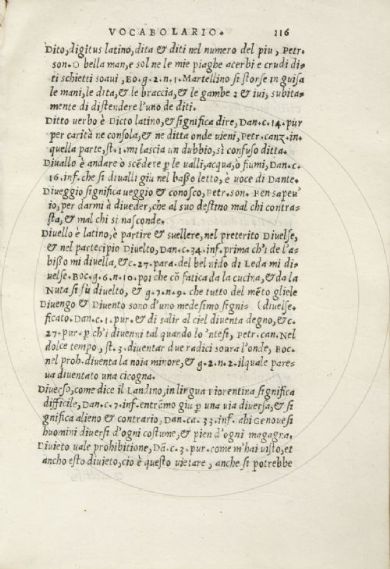 VOCABOLARIO. 116
Dito, digitus latino, dita & diti nel numero del piu, Petr.
son. O bella man, e sol ne le mie piaghe acerbi e crudi di-
ti schietti soaui, Bo. g. 2. n. 1. Martellino si storse in guisa
le mani, le dita, & le braccia, & le gambe: & iui, subita-
mente di distendere l'uno de diti.
Ditto uerbo è Dicto latino, & significa dire, Dan. c. 14. pur
per carità ne consola, & ne ditta onde uieni, Petr. canz. in
quella parte, st. 1. mi lascia un dubbio, sì confuso ditta.
Diuallo è andare o scẽdete p le ualli, acqua, o fiumi, Dan. c.
16. inf. che si diualli giu nel basso letto, è uoce di Dante.
Diueggio significa ueggio & conosco, Petr. son. Ben sapeu'
io, per darmi à diueder, che al suo destino mal chi contra-
sta, & mal chi si nasconde.
Diuello è latino, è partire & suellere, nel preterito Diuelse,
& nel partecipio Diuelto, Dan. c. 34. inf. prima ch'i de l'a-
bisso mi diuella, & c. 27. para. del bel nido di Leda mi di-
uelse. Boc. g. 6. n. 10. poi che cõ fatica da la cucina, & da la
Nuta si fu diuelto, & g. 7. n. 9. che tutto del mẽto gliele
Diuengo & Diuento sono d'uno medesimo signi- (diuelse.
ficato. Dan. c. 1. pur. & di salir al ciel diuenta degno, & c.
27. pur. p ch'i diuenni tal quando lo 'ntesi, Petr. can. Nel
dolce tempo, st. 3. diuentar due radici soura l'onde, Boc.
nel proh. diuenta la noia minore, & g. 2. n. 2. il quale pare-
ua diuentato una cicogna.
Diuerso, come dice il Landino, in lingua Fiorentina significa
difficile, Dan. c. 7. inf. entrãmo giu p una uia diuersa, & si
gnifica alieno & contrario, Dan. ca. 33. inf. ahi Genouesi
huomini diuersi d'ogni costume, & pien d'ogni magagna.
Diuieto uale prohibitione, Dã. c. 3. pur. come m'hai uisto, et
ancho esto diuieto, cio è questo uietare, anche si potrebbe